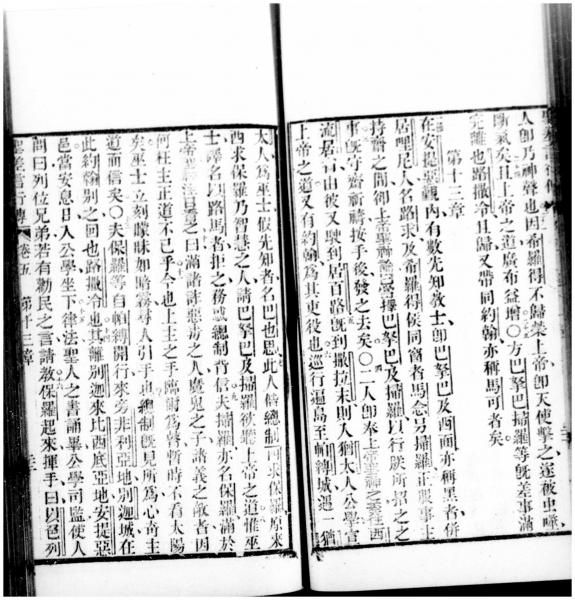 人卽乃神聲也因希羅得不歸榮上帝卽天使擊之遂被虫噬
斷氣矣且上帝之道廣布益增○方巴拏巴掃羅等旣差事滿
完離也路撒冷且歸又帶同約翰亦稱馬可者矣
第十三章
在安提惡觀內有數先知敎士卽巴拏巴及西面亦稱黑者併
居哩尼人名路求及希羅得侯同窗者馬念另掃羅正服事主
持齋之間卹上帝聖神諭言擇巴拏巴及掃羅以行朕所招之之
事旣守齋祈禱按手後發之去矣○二人卽奉上帝聖神之差往西
流居言由彼又駛到居百路旣到撒拉未則人猶太人公學宣
上帝之道又有約翰爲其吏役也巡行遍島至帕轉城遇一猶
太人爲巫士假先知者名巴也思此人偕總制西求保羅原來
西求保羅乃智慧之人請巴拏巴及掃羅欲聽上帝之道惟巫
士譯名以路馬者拒之務惑總制背信夫掃羅亦名保羅滿於
上帝聖神注目看之曰滿諸詿惡毒之人魔鬼之子諸義之敵者因
何枉主正道不已乎今也上主之手臨爾爲瞽暫時不看太陽
矣巫士立刻矇昧如暗霧尋人引手也總制旣見所爲心奇主
道而信矣○夫保羅等自帕轉開行來旁非利亞地別迦城在
此約翰別之回也路撒冷也其離別迦來比西底亞地安提惡
邑當安息日人公學坐下律法聖人之書誦畢公學司監使人
問曰列位兄弟若有勸民之言請敎保羅起來揮手曰以色列
卷五 第十三章